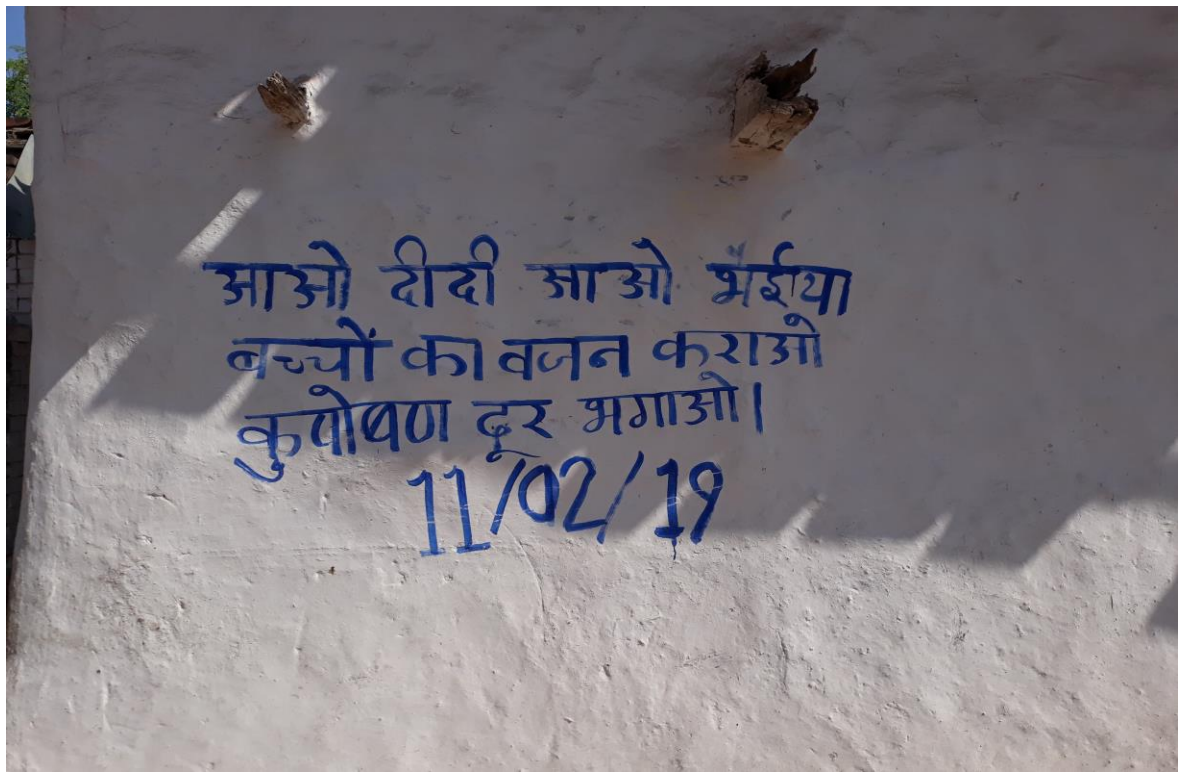 आओ दीदी आओ भईया
बच्चों का वजन कराओ
कुपोषण दूर भगाओ।
11/02/19